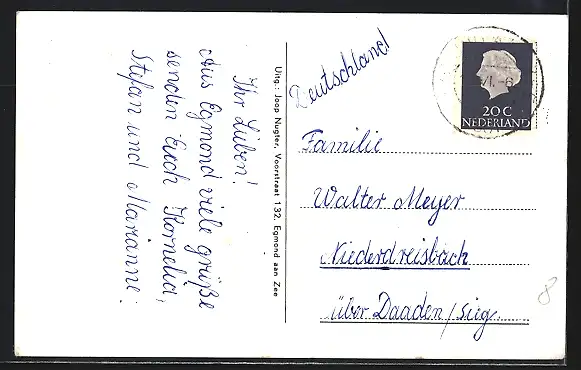 Ihr Lieben!
Aus Egmond viele grüße
senden Euch Kornelia,
Stefan und Marianne.
Uitg.: Joop Nugter, Voorstraat 132, Egmond aan Zee
Deutschland
20 C
NEDERLAND
Familie
Walter Meyer
Niederdreisbach
über Daaden/Sieg.
8